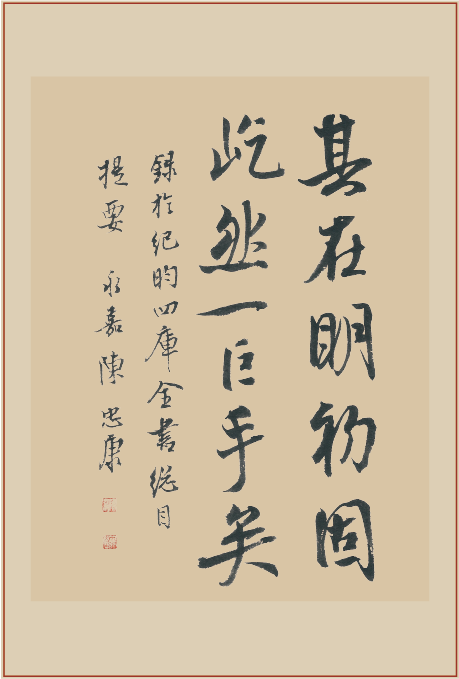 其在明初固
屹然一巨手矣
録於紀昀四庫全書総目
提要 永嘉陳忠康